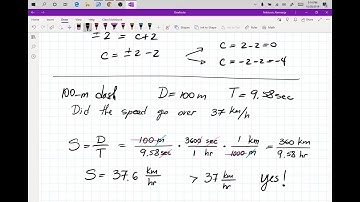 ±2 = C+2
C = ±2 -2
C = 2-2=0
C = -2-2=-4
100-m dash D=100m T= 9.58sec
Did the speed go over 37 km/h
S = D/T = 100 m/9.58 sec · 3600 sec/1 hr · 1 km/1000 m = 360 km/9.58 hr
S = 37.6 km/hr > 37 km/hr yes!